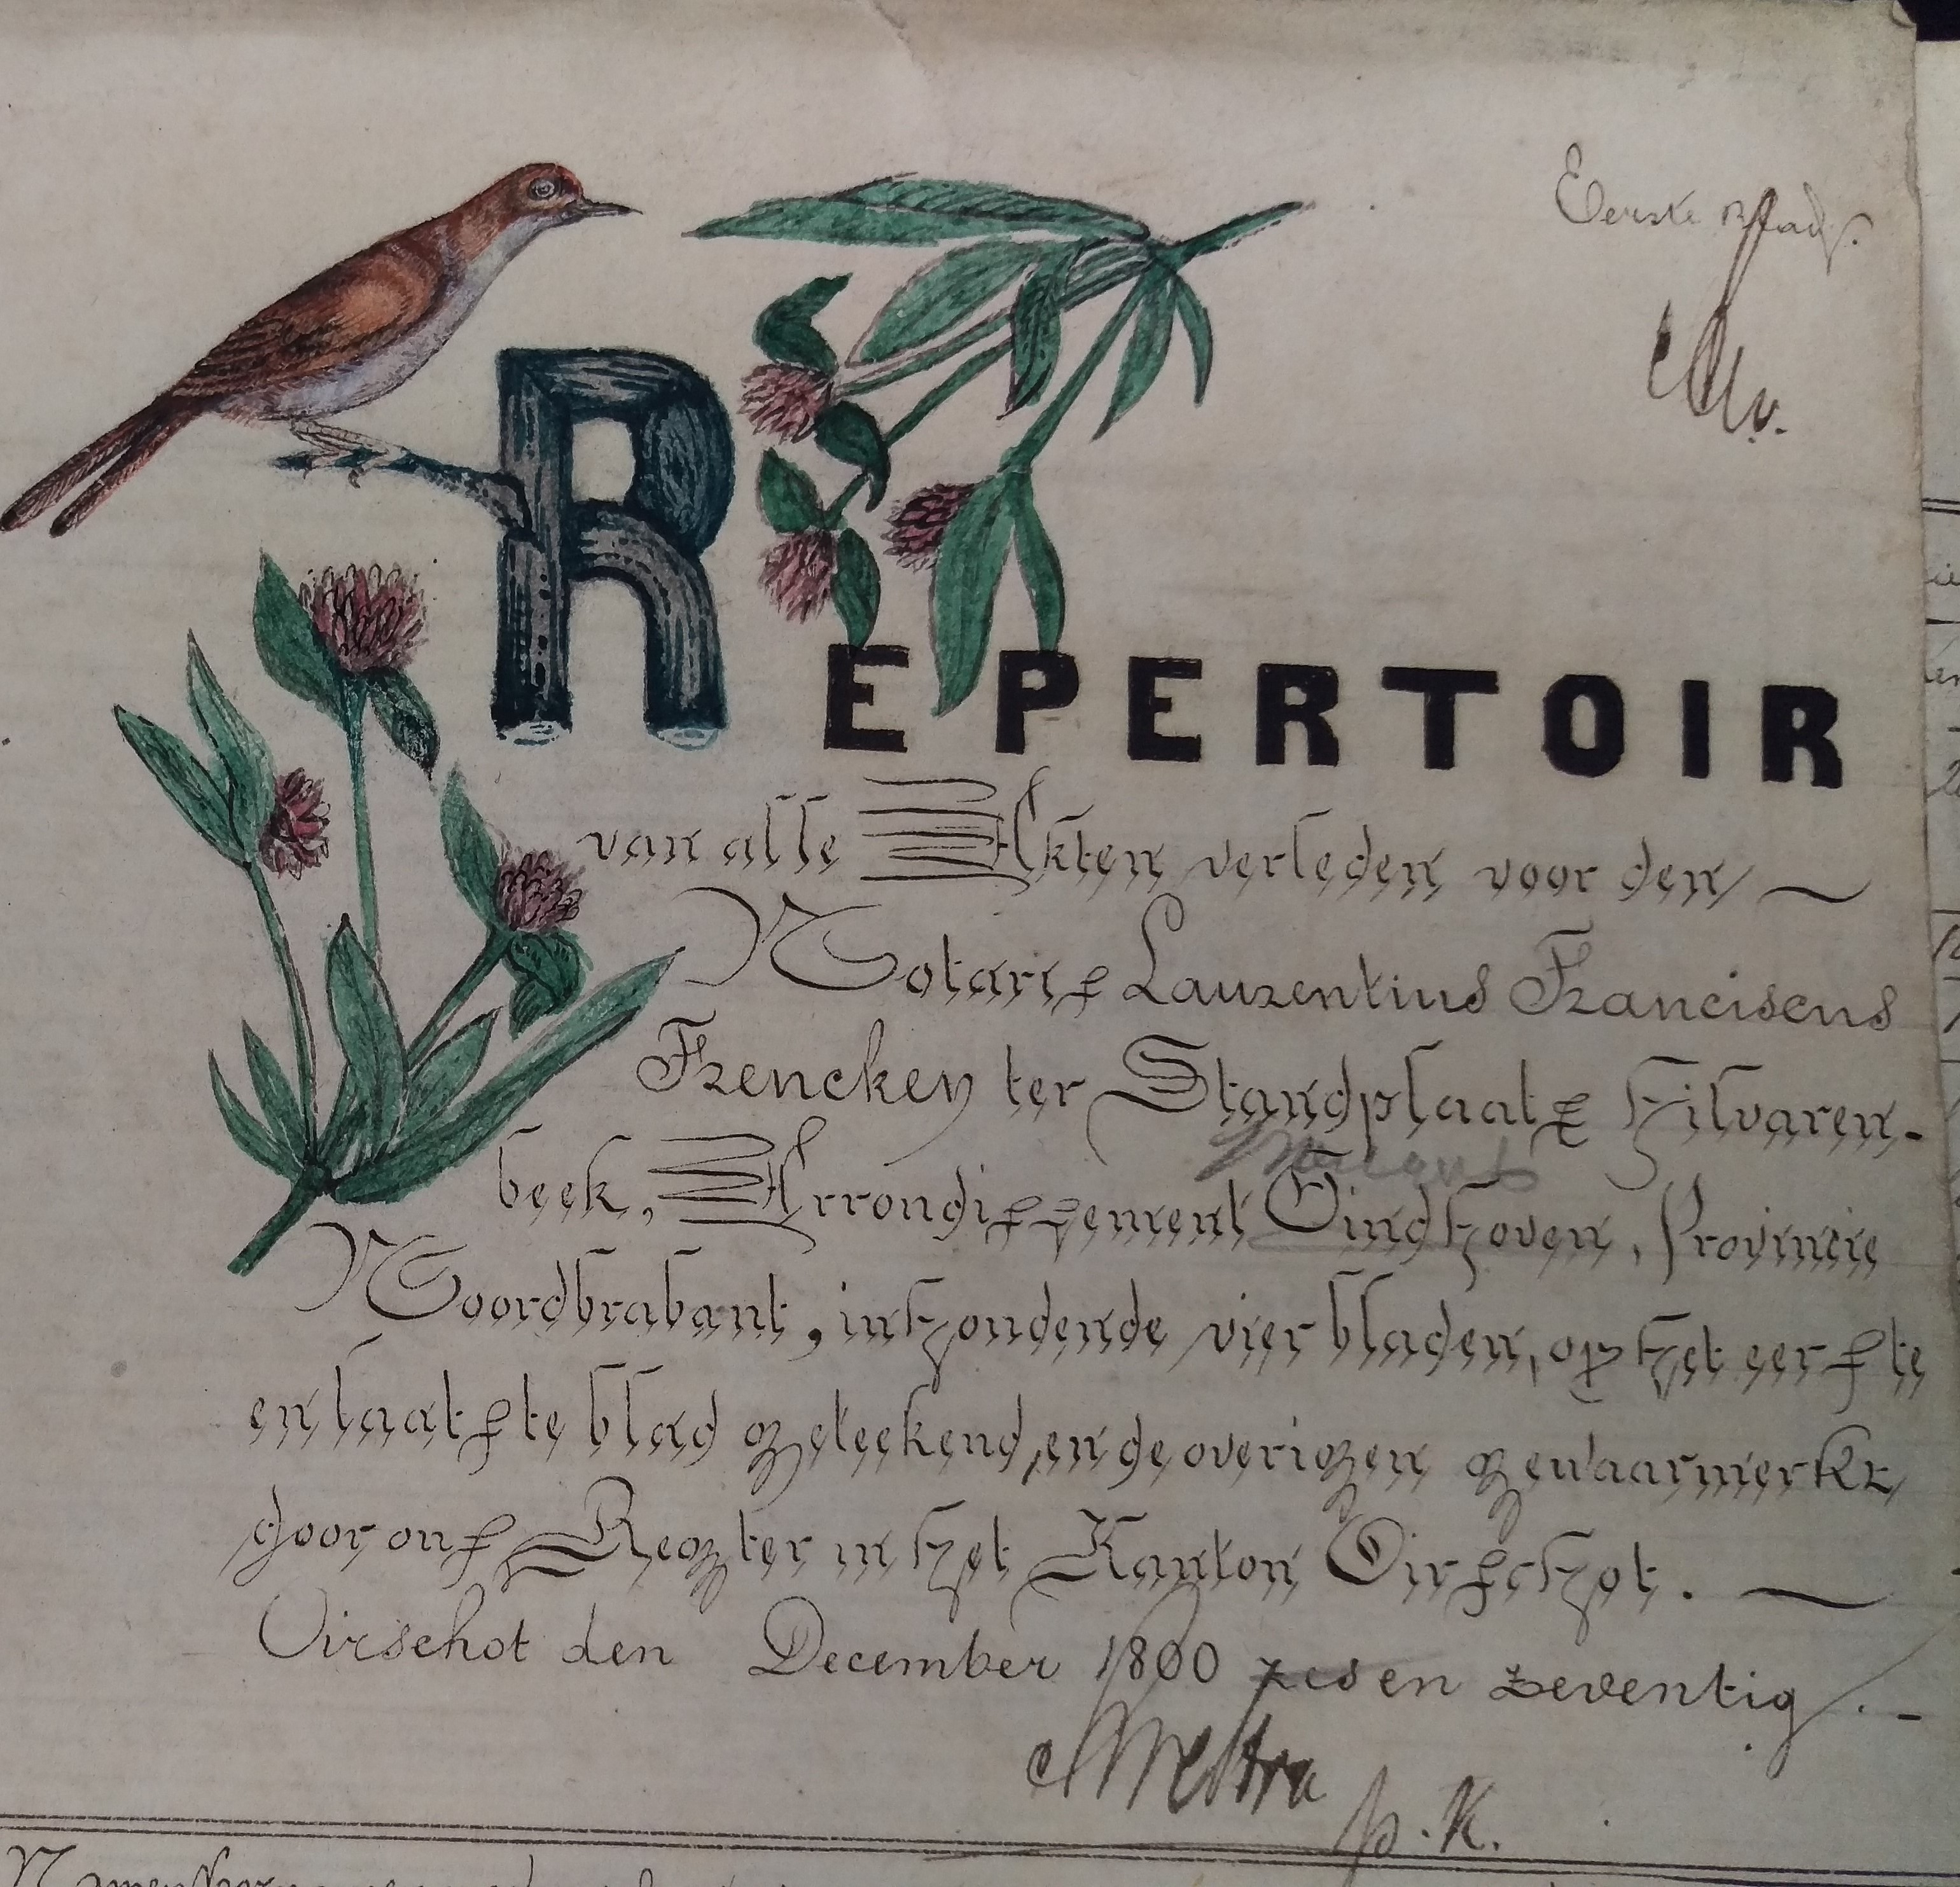 Eerste Blad.
REPERTOIR
van alle Akten verleden voor den
Notaris Laurentius Franciscus
Frencken ter Standplaats Hilvaren-
beek, Arrondissement Eindhoven, Provincie
Noordbrabant, inhoudende vier bladen, op het eerste
en laatste blad geteekend, en de overigen gewaarmerkt
door ons Regter in het Kanton Oirschot.
Oirschot den December 1800 zes en zeventig.
p.K.